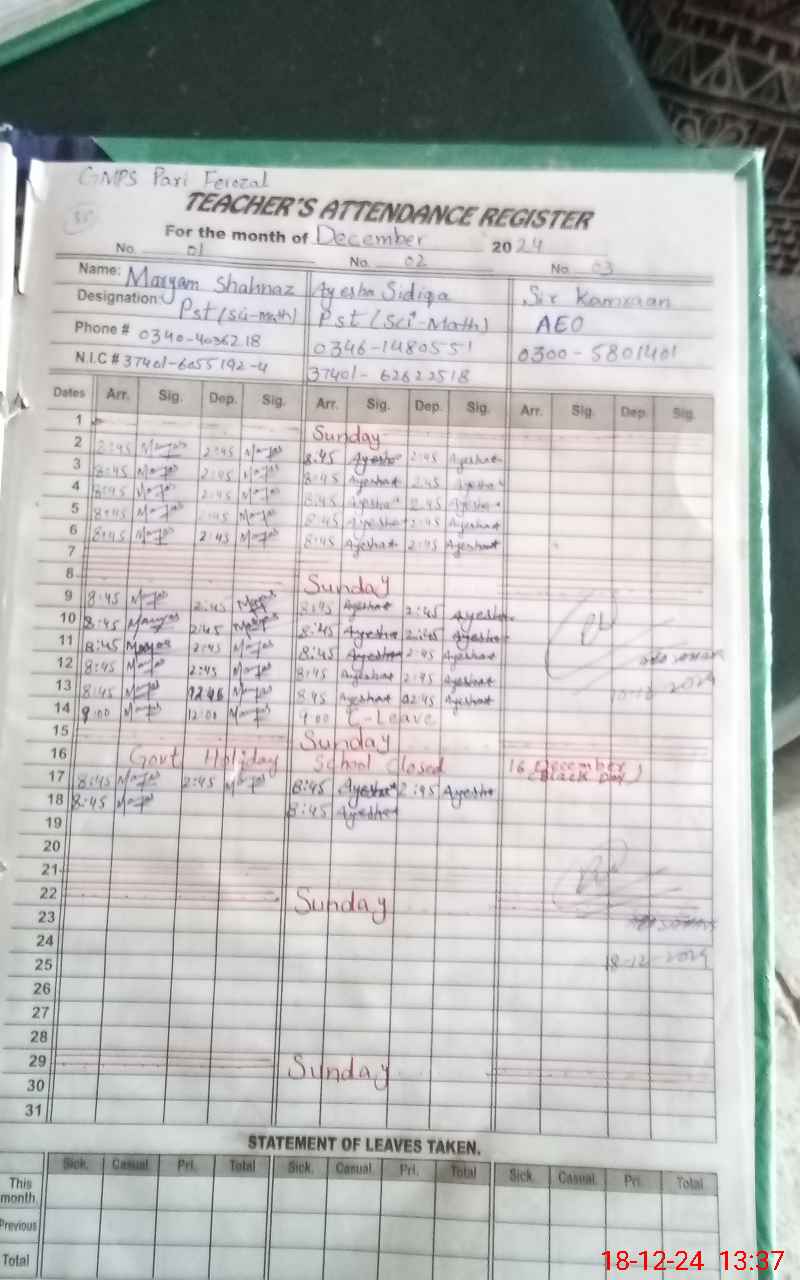 GMPS Pari Ferozal
TEACHER'S ATTENDANCE REGISTER
For the month of December 2024
No. 01 No. 02 No. 03
Name: Maryam Shahnaz Ayesha Sidiqa Sir Kamraan
Designation: Pst (Sci-math) Pst (Sci-Math) AEO
Phone # 0340-4036218 0346-1480551 0300-5801401
N.I.C # 37401-6055192-4 37401-62622518
Dates Arr. Sig. Dep. Sig. Arr. Sig. Dep. Sig. Arr. Sig. Dep. Sig.
1 Sunday
2 8:45 2:45 8:45 Ayesha 2:45 Ayesha
3 8:45 2:45 8:45 Ayesha 2:45 Ayesha
4 8:45 2:45 8:45 Ayesha 2:45 Ayesha
5 8:45 2:45 8:45 Ayesha 2:45 Ayesha
6 8:45 2:45 8:45 Ayesha 2:45 Ayesha
7
8 Sunday
9 8:45 2:45 8:45 Ayesha 2:45 Ayesha
10 8:45 2:45 8:45 Ayesha 2:45 Ayesha
11 8:45 2:45 8:45 Ayesha 2:45 Ayesha
12 8:45 2:45 8:45 Ayesha 2:45 Ayesha
13 8:45 8:45 Ayesha 02:45 Ayesha
14 9:00 12:00 9:00 C-Leave
15 Sunday
16 Govt Holiday School Closed 16 December (Black Day)
17 8:45 2:45 8:45 Ayesha 2:45 Ayesha
18 8:45 8:45 Ayesha
19
20
21
22 Sunday
23
24
25 18-12-2024
26
27
28
29 Sunday
30
31
STATEMENT OF LEAVES TAKEN.
Sick. Casual. Pri. Total Sick. Casual. Pri. Total Sick. Casual. Pri. Total
This month.
Previous
Total
18-12-24 13:37